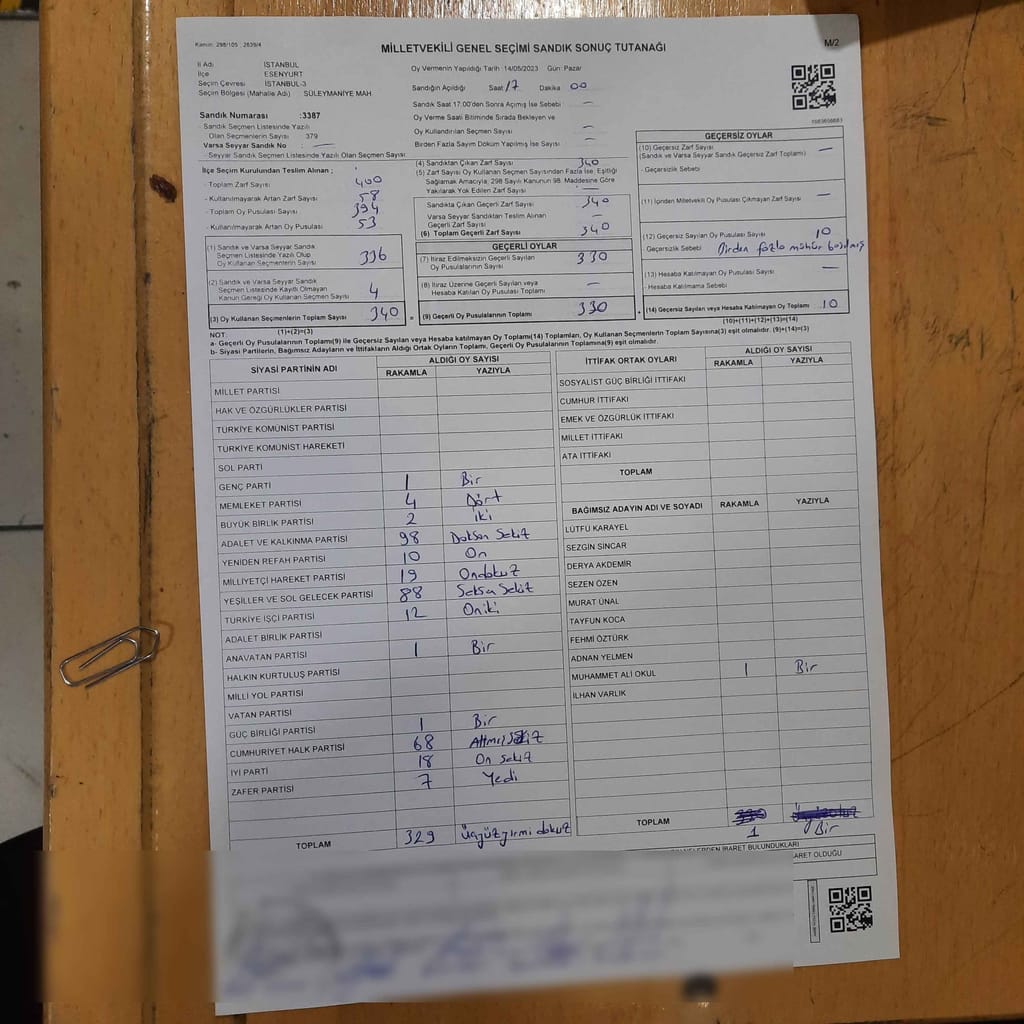 Kanun: 298/105 ; 2839/4
MİLLETVEKİLİ GENEL SEÇİMİ SANDIK SONUÇ TUTANAĞI
M/2
İl Adı İSTANBUL
İlçe ESENYURT
Seçim Çevresi İSTANBUL-3
Seçim Bölgesi (Mahalle Adı) SÜLEYMANİYE MAH.
Oy Vermenin Yapıldığı Tarih :14/05/2023 Gün: Pazar
Sandığın Açıldığı Saat 17 Dakika 00
Sandık Saat 17:00'den Sonra Açımış İse Sebebi —
Oy Verme Saati Bitiminde Sırada Bekleyen ve
Oy Kullandırılan Seçmen Sayısı —
Birden Fazla Sayım Döküm Yapılmış İse Sayısı —
Sandık Numarası :3387
- Sandık Seçmen Listesinde Yazılı
Olan Seçmenlerin Sayısı 379
Varsa Seyyar Sandık No : —
- Seyyar Sandık Seçmen Listesinde Yazılı Olan Seçmen Sayısı
İlçe Seçim Kurulundan Teslim Alınan ;
- Toplam Zarf Sayısı 400
- Kullanılmayarak Artan Zarf Sayısı 58
- Toplam Oy Pusulası Sayısı 394
- Kullanılmayarak Artan Oy Pusulası 53
(1) Sandık ve Varsa Seyyar Sandık
Seçmen Listesinde Yazılı Olup
Oy Kullanan Seçmenlerin Sayısı 336
(2) Sandık ve Varsa Seyyar Sandık
Seçmen Listesinde Kayıtlı Olmayan
Kanun Gereği Oy Kullanan Seçmen Sayısı 4
(3) Oy Kullanan Seçmenlerin Toplam Sayısı 340
(1)+(2)=(3)
(4) Sandıktan Çıkan Zarf Sayısı 340
(5) Zarf Sayısı Oy Kullanan Seçmen Sayısından Fazla İse, Eşitliği
Sağlamak Amacıyla, 298 Sayılı Kanunun 98. Maddesine Göre
Yakılarak Yok Edilen Zarf Sayısı —
Sandıkta Çıkan Geçerli Zarf Sayısı 340
Varsa Seyyar Sandıktan Teslim Alınan
Geçerli Zarf Sayısı —
(6) Toplam Geçerli Zarf Sayısı 340
GEÇERLİ OYLAR
(7) İtiraz Edilmeksizin Geçerli Sayılan
Oy Pusulalarının Sayısı 330
(8) İtiraz Üzerine Geçerli Sayılan veya
Hesaba Katılan Oy Pusulası Toplamı —
= (9) Geçerli Oy Pusulalarının Toplamı 330
GEÇERSİZ OYLAR
(10) Geçersiz Zarf Sayısı
(Sandık ve Varsa Seyyar Sandık Geçersiz Zarf Toplamı) —
- Geçersizlik Sebebi
(11) İçinden Milletvekili Oy Pusulası Çıkmayan Zarf Sayısı —
(12) Geçersiz Sayılan Oy Pusulası Sayısı 10
Geçersizlik Sebebi Birden fazla mühür basılmış
(13) Hesaba Katılmayan Oy Pusulası Sayısı —
- Hesaba Katılmama Sebebi
+ (14) Geçersiz Sayılan veya Hesaba Katılmayan Oy Toplamı 10
(10)+(11)+(12)+(13)=(14)
NOT:
a- Geçerli Oy Pusulalarının Toplamı(9) ile Geçersiz Sayılan veya Hesaba katılmayan Oy Toplamı(14) Toplamları, Oy Kullanan Seçmenlerin Toplam Sayısına(3) eşit olmalıdır. (9)+(14)=(3)
b- Siyasi Partilerin, Bağımsız Adayların ve İttifakların Aldığı Ortak Oyların Toplamı, Geçerli Oy Pusulalarının Toplamına(9) eşit olmalıdır.
SİYASİ PARTİNİN ADI
ALDIĞI OY SAYISI
RAKAMLA YAZIYLA
MİLLET PARTİSİ
HAK VE ÖZGÜRLÜKLER PARTİSİ
TÜRKİYE KOMÜNİST PARTİSİ
TÜRKİYE KOMÜNİST HAREKETİ
SOL PARTİ
GENÇ PARTİ 1 Bir
MEMLEKET PARTİSİ 4 Dört
BÜYÜK BİRLİK PARTİSİ 2 iki
ADALET VE KALKINMA PARTİSİ 98 Doksan Sekiz
YENİDEN REFAH PARTİSİ 10 On
MİLLİYETÇİ HAREKET PARTİSİ 19 Ondokuz
YEŞİLLER VE SOL GELECEK PARTİSİ 88 Seksen Sekiz
TÜRKİYE İŞÇİ PARTİSİ 12 Oniki
ADALET BİRLİK PARTİSİ
ANAVATAN PARTİSİ 1 Bir
HALKIN KURTULUŞ PARTİSİ
MİLLİ YOL PARTİSİ
VATAN PARTİSİ
GÜÇ BİRLİĞİ PARTİSİ 1 Bir
CUMHURİYET HALK PARTİSİ 68 Altmış Sekiz
İYİ PARTİ 18 On Sekiz
ZAFER PARTİSİ 7 Yedi
TOPLAM 329 üçyüzyirmi dokuz
İTTİFAK ORTAK OYLARI
ALDIĞI OY SAYISI
RAKAMLA YAZIYLA
SOSYALİST GÜÇ BİRLİĞİ İTTİFAKI
CUMHUR İTTİFAKI
EMEK VE ÖZGÜRLÜK İTTİFAKI
MİLLET İTTİFAKI
ATA İTTİFAKI
TOPLAM
BAĞIMSIZ ADAYIN ADI VE SOYADI RAKAMLA YAZIYLA
LÜTFÜ KARAYEL
SEZGİN SİNCAR
DERYA AKDEMİR
SEZEN ÖZEN
MURAT ÜNAL
TAYFUN KOCA
FEHMİ ÖZTÜRK
ADNAN YELMEN
MUHAMMET ALİ OKUL 1 Bir
İLHAN VARLIK
TOPLAM 1 Bir
İBARET BULUNDUKLARI
ARET OLDUĞU